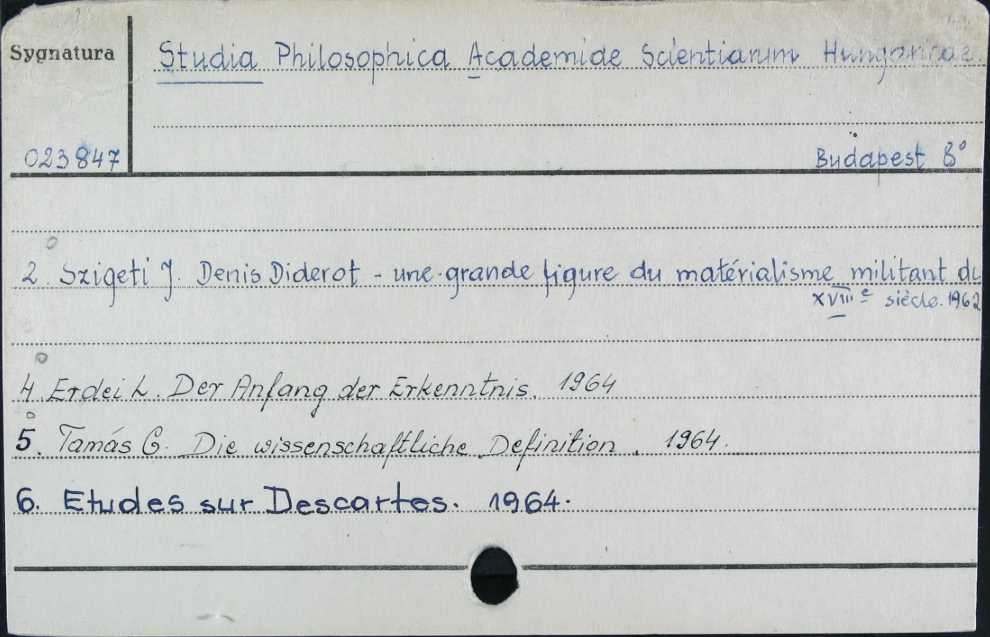 Sygnatura
Studia Philosophica Academiae Scientiarum Hungaricae
023847
Budapest 8°
2. Szigeti J. Denis Diderot - une grande figure du matérialisme militant du
XVIII e siècle. 1962
4. Erdei L. Der Anfang der Erkenntnis. 1964
5. Tamás G. Die wissenschaftliche Definition. 1964.
6. Etudes sur Descartes. 1964.